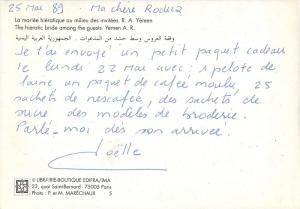 25 Mai 89 - Ma chère Rodica
La mariée hiératique au milieu des invitées. R. A. Yémen
The hieratic bride among the guests. Yemen A. R.
وقفة العروس وسط حشد من المدعوات - الجمهورية العربية اليمنية
Je t'ai envoyé un petit paquet cadeau
le lundi 22 mai avec : 1 pelote de
laine un paquet de café moulu, 25
sachets de nescafée, des sachets de
sucre, des modèles de broderie.
Parle-moi dès son arrivée.
Joëlle
© LIBRAIRIE-BOUTIQUE EDIFRA/IMA
23, quai Saint-Bernard - 75005 Paris
Photo : P. et M. MARÉCHAUX 5